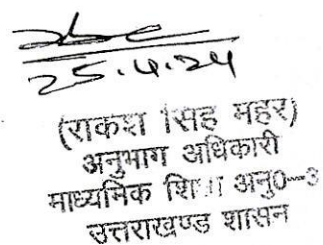 25.4.24
(राकेश सिंह महर)
अनुभाग अधिकारी
माध्यमिक शिक्षा अनु0-3
उत्तराखण्ड शासन